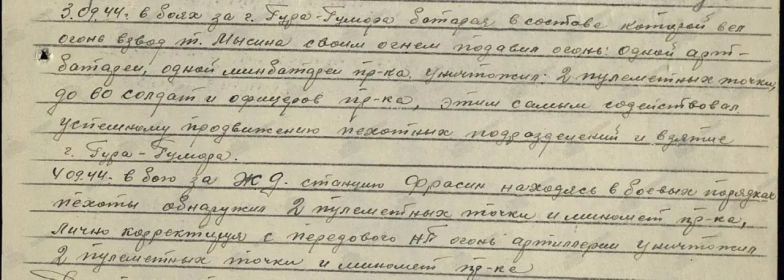 3.09.44г. в боях за г. Гура-Гумора батарея в составе которой вел
огонь взвод т. Мысина своим огнем подавил огонь: одной арт-
батареи, одной минбатареи пр-ка. уничтожил: 2 пулеметных точки,
до 60 солдат и офицеров пр-ка, этим самым содействовал
успешному продвижению пехотных подразделений и взятие
г. Гура-Гумора.
4.09.44г. в бою за ЖД. станцию Фрасин находясь в боевых порядках
пехоты обнаружил 2 пулеметных точки и миномет пр-ка,
Лично корректируя с передового НП огонь артиллерии уничтожил
2 пулеметных точки и миномет пр-ка